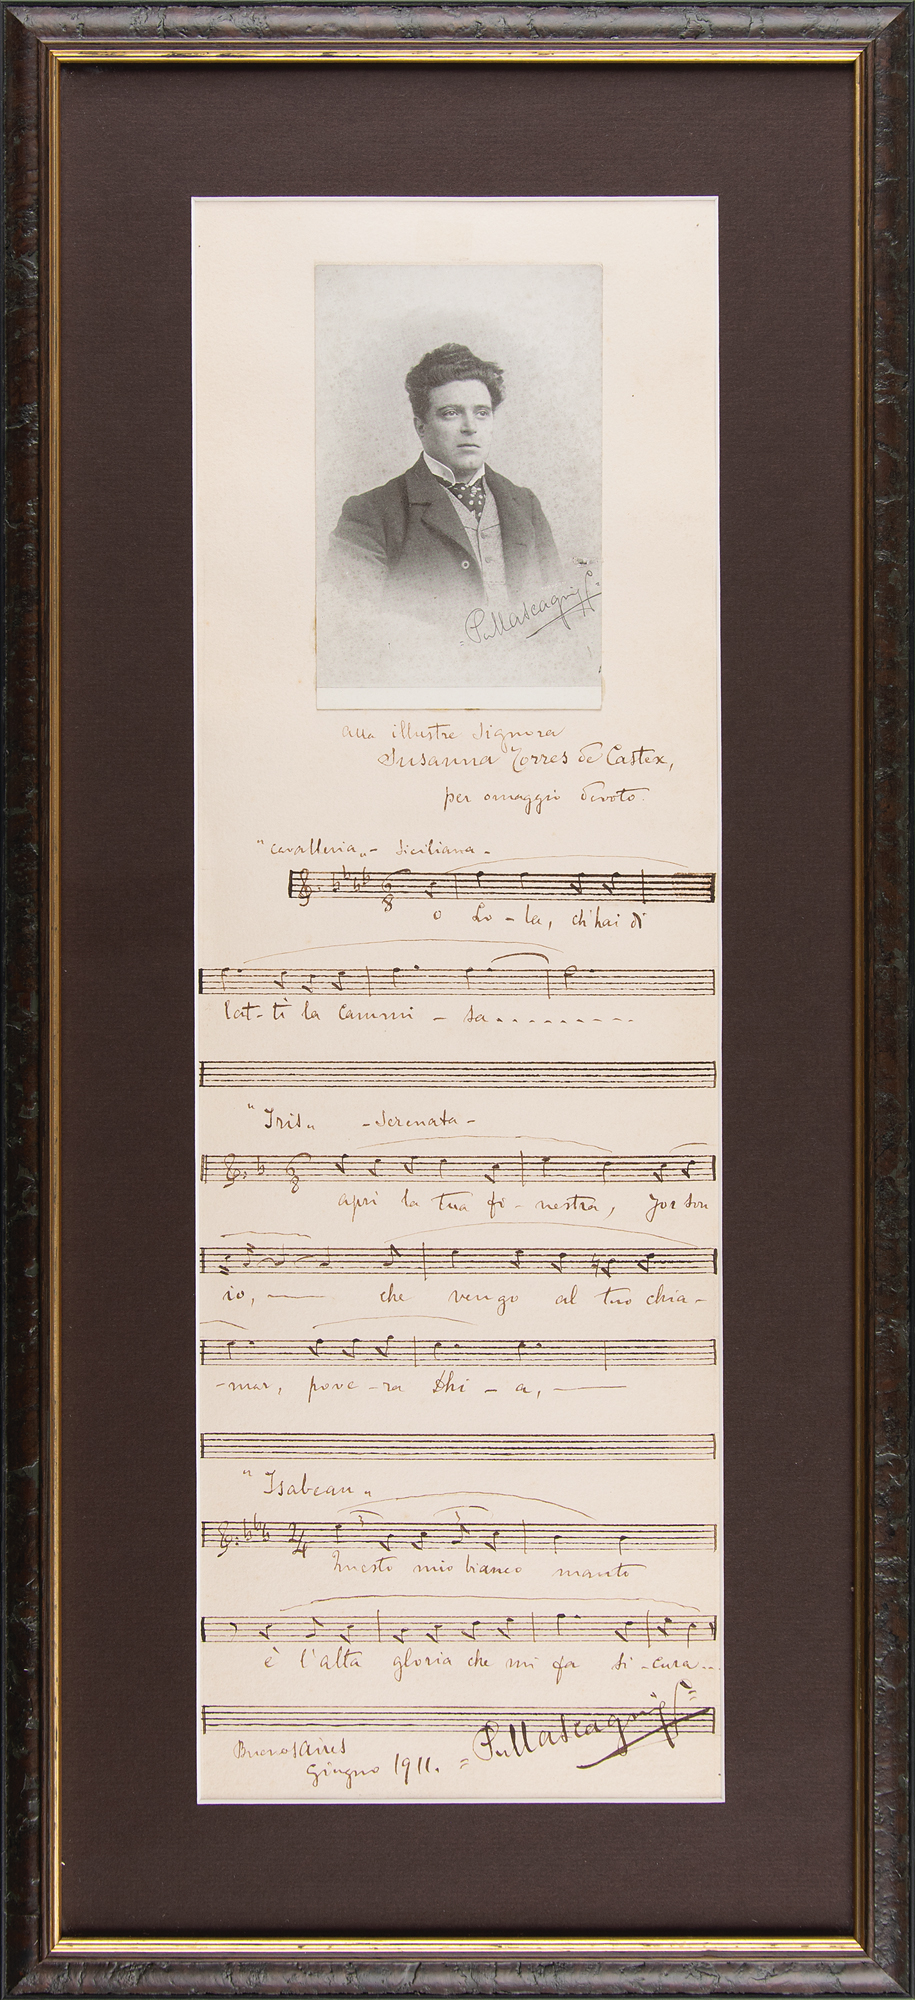 P. Mascagni
alla illustre Signora
Susanna Torres de Castex,
per omaggio devoto.
"Cavalleria" - Siciliana -
O Lo - la, ch'hai di
lat - ti la cammi - sa . . . . . . . . .
"Iris" - Serenata -
apri la tua fi - nestra, Jor son
io, — che vengo al tuo chia -
- mar, pove - ra Dhi - a, —
"Isabeau"
Questo mio bianco manto
è l'alta gloria che mi fa si - cura...
P. Mascagni
Buenos Aires
Giugno 1911.